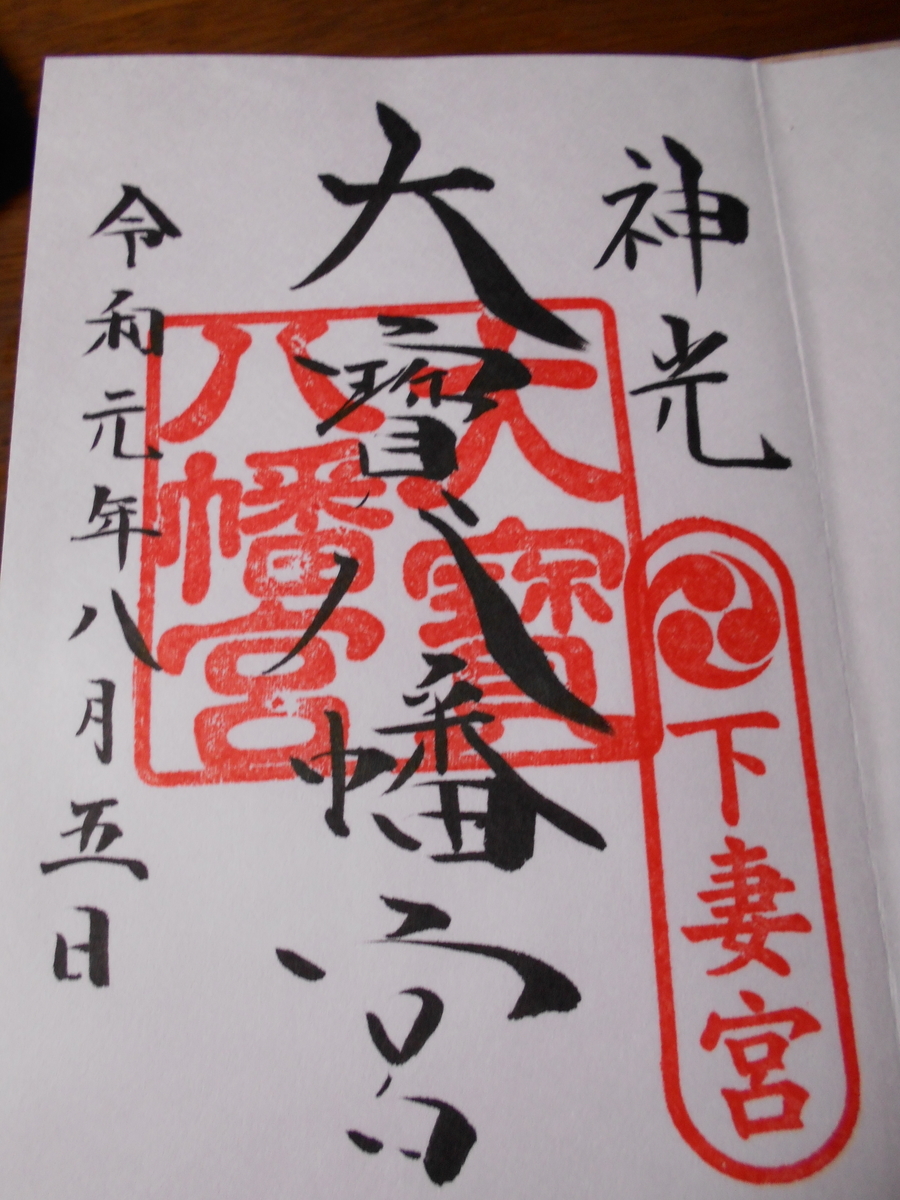 神光
下妻宮
大寳八幡宮
大寳
八幡宮
令和元年八月五日